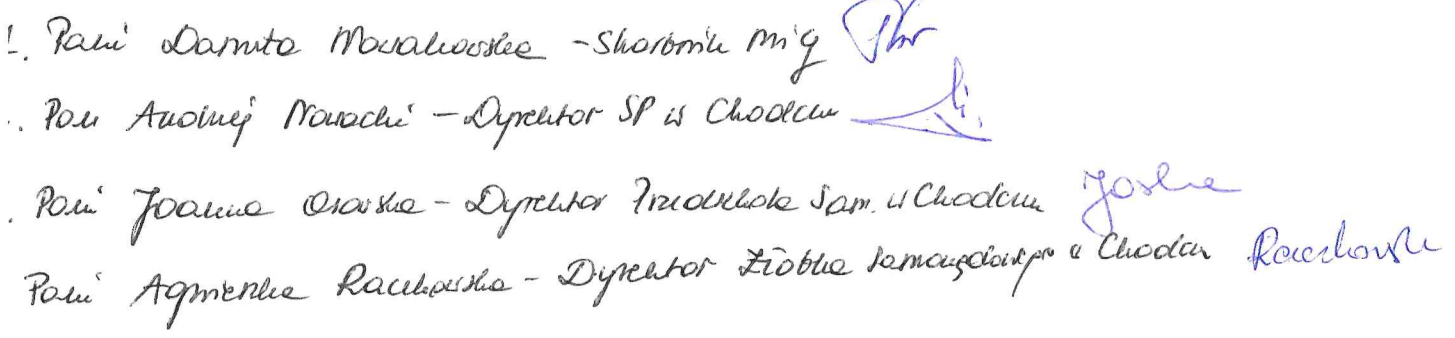 1. Pani Danuta Marakowska - Skarbnik MiG
. Pan Andrzej Nowacki - Dyrektor SP w Chodczu
. Pani Joanna Osowska - Dyrektor Przedszkola Sam. w Chodczu Joska
Pani Agnieszka Raczkowska - Dyrektor Żłobka Samorządowego w Chodczu Raczkowska